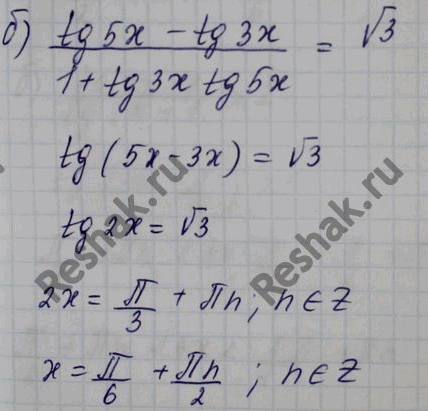 б) tg 5x - tg 3x / 1 + tg 3x tg 5x = √3
tg (5x - 3x) = √3
tg 2x = √3
2x = π/3 + πn; n ∈ Z
x = π/6 + πn/2; n ∈ Z
Reshak.ru
Reshak.ru